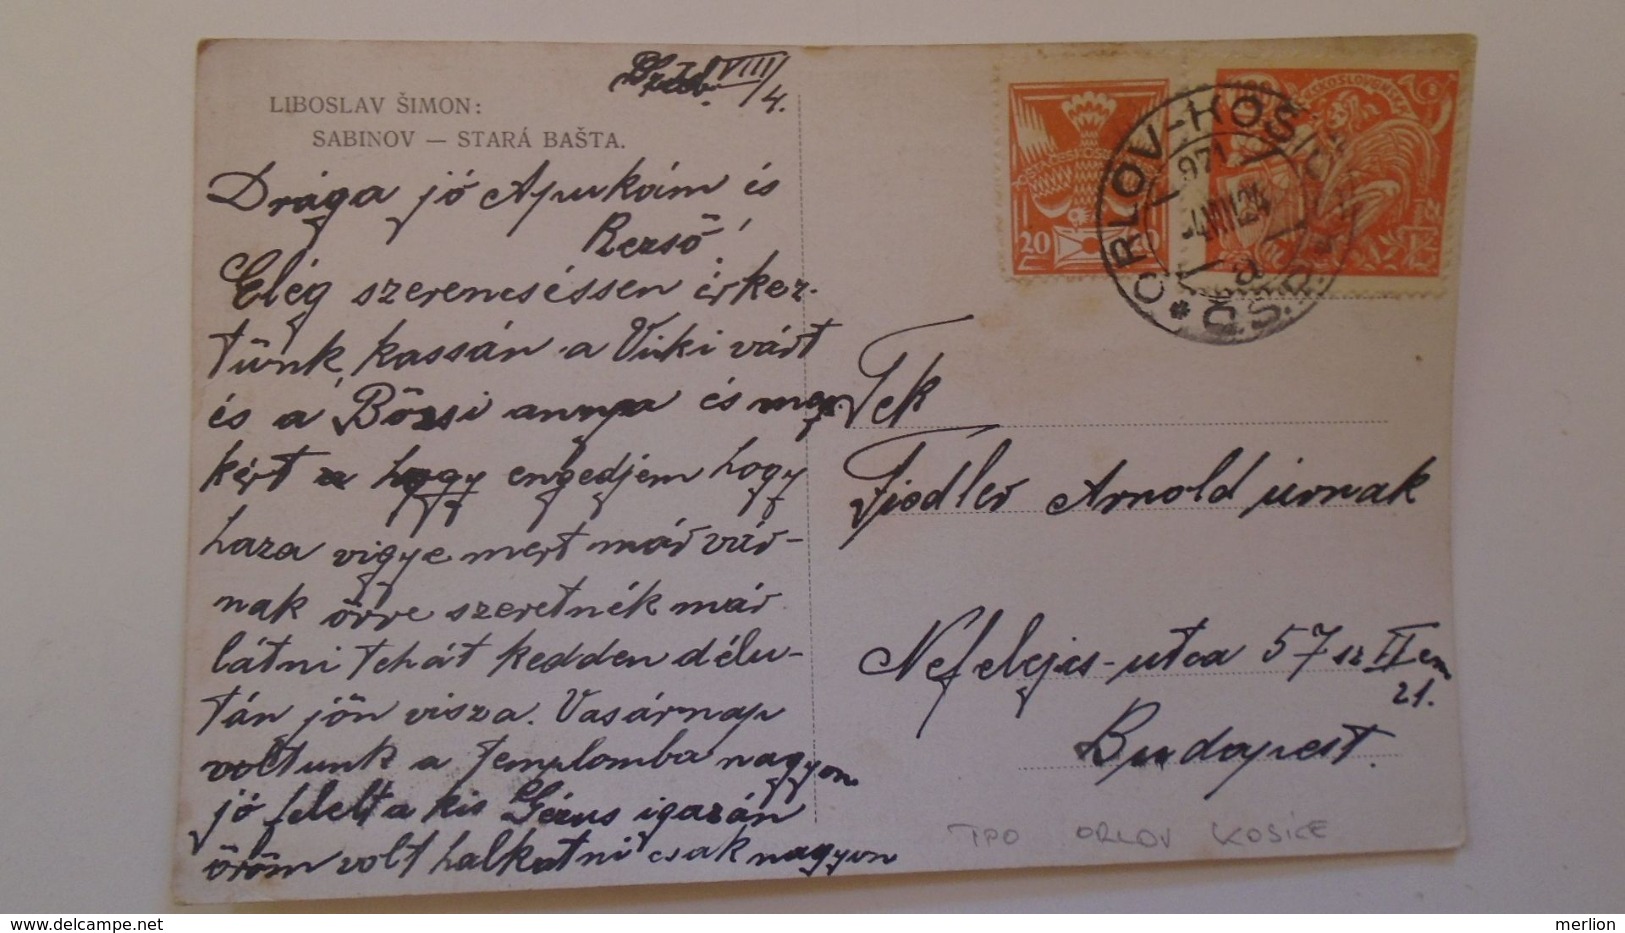 VIII/4.
LIBOSLAV ŠIMON:
SABINOV — STARÁ BAŠTA.
Drága jó Apukám és
Rezső!
Elég szerencséssen érkez-
tünk, kassán a Viki várt
és a Bözsi annya és meg
kért a hogy engedjem hogy
haza vigye mert már vár-
nak örre szeretnék már
látni tehát kedden délu-
tán jön visza. Vasárnap
voltunk a templomba nagyon
jó felelt a kis Gézus igazán
öröm volt halkatni csak nagyon
20 20
ORLOV-KOŠICE
971
-4.VIII.24
a
Č.S.P.
Tek
Fiedler Arnold úrnak
Nefelejcs-utca 57 sz II em
21.
Budapest.
TPO ORLOV KOSICE
delcampe.net
merlion